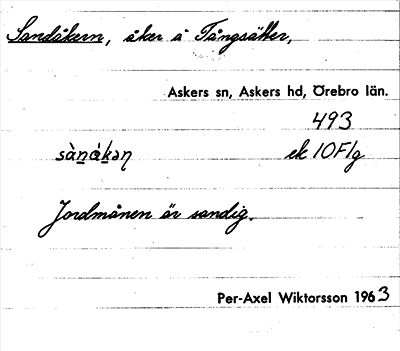 Sandåkern, åker å Tångsätter,
Askers sn, Askers hd, Örebro län.
493
sànákən ek 10F1g
Jordmånen är sandig.
Per-Axel Wiktorsson 1963